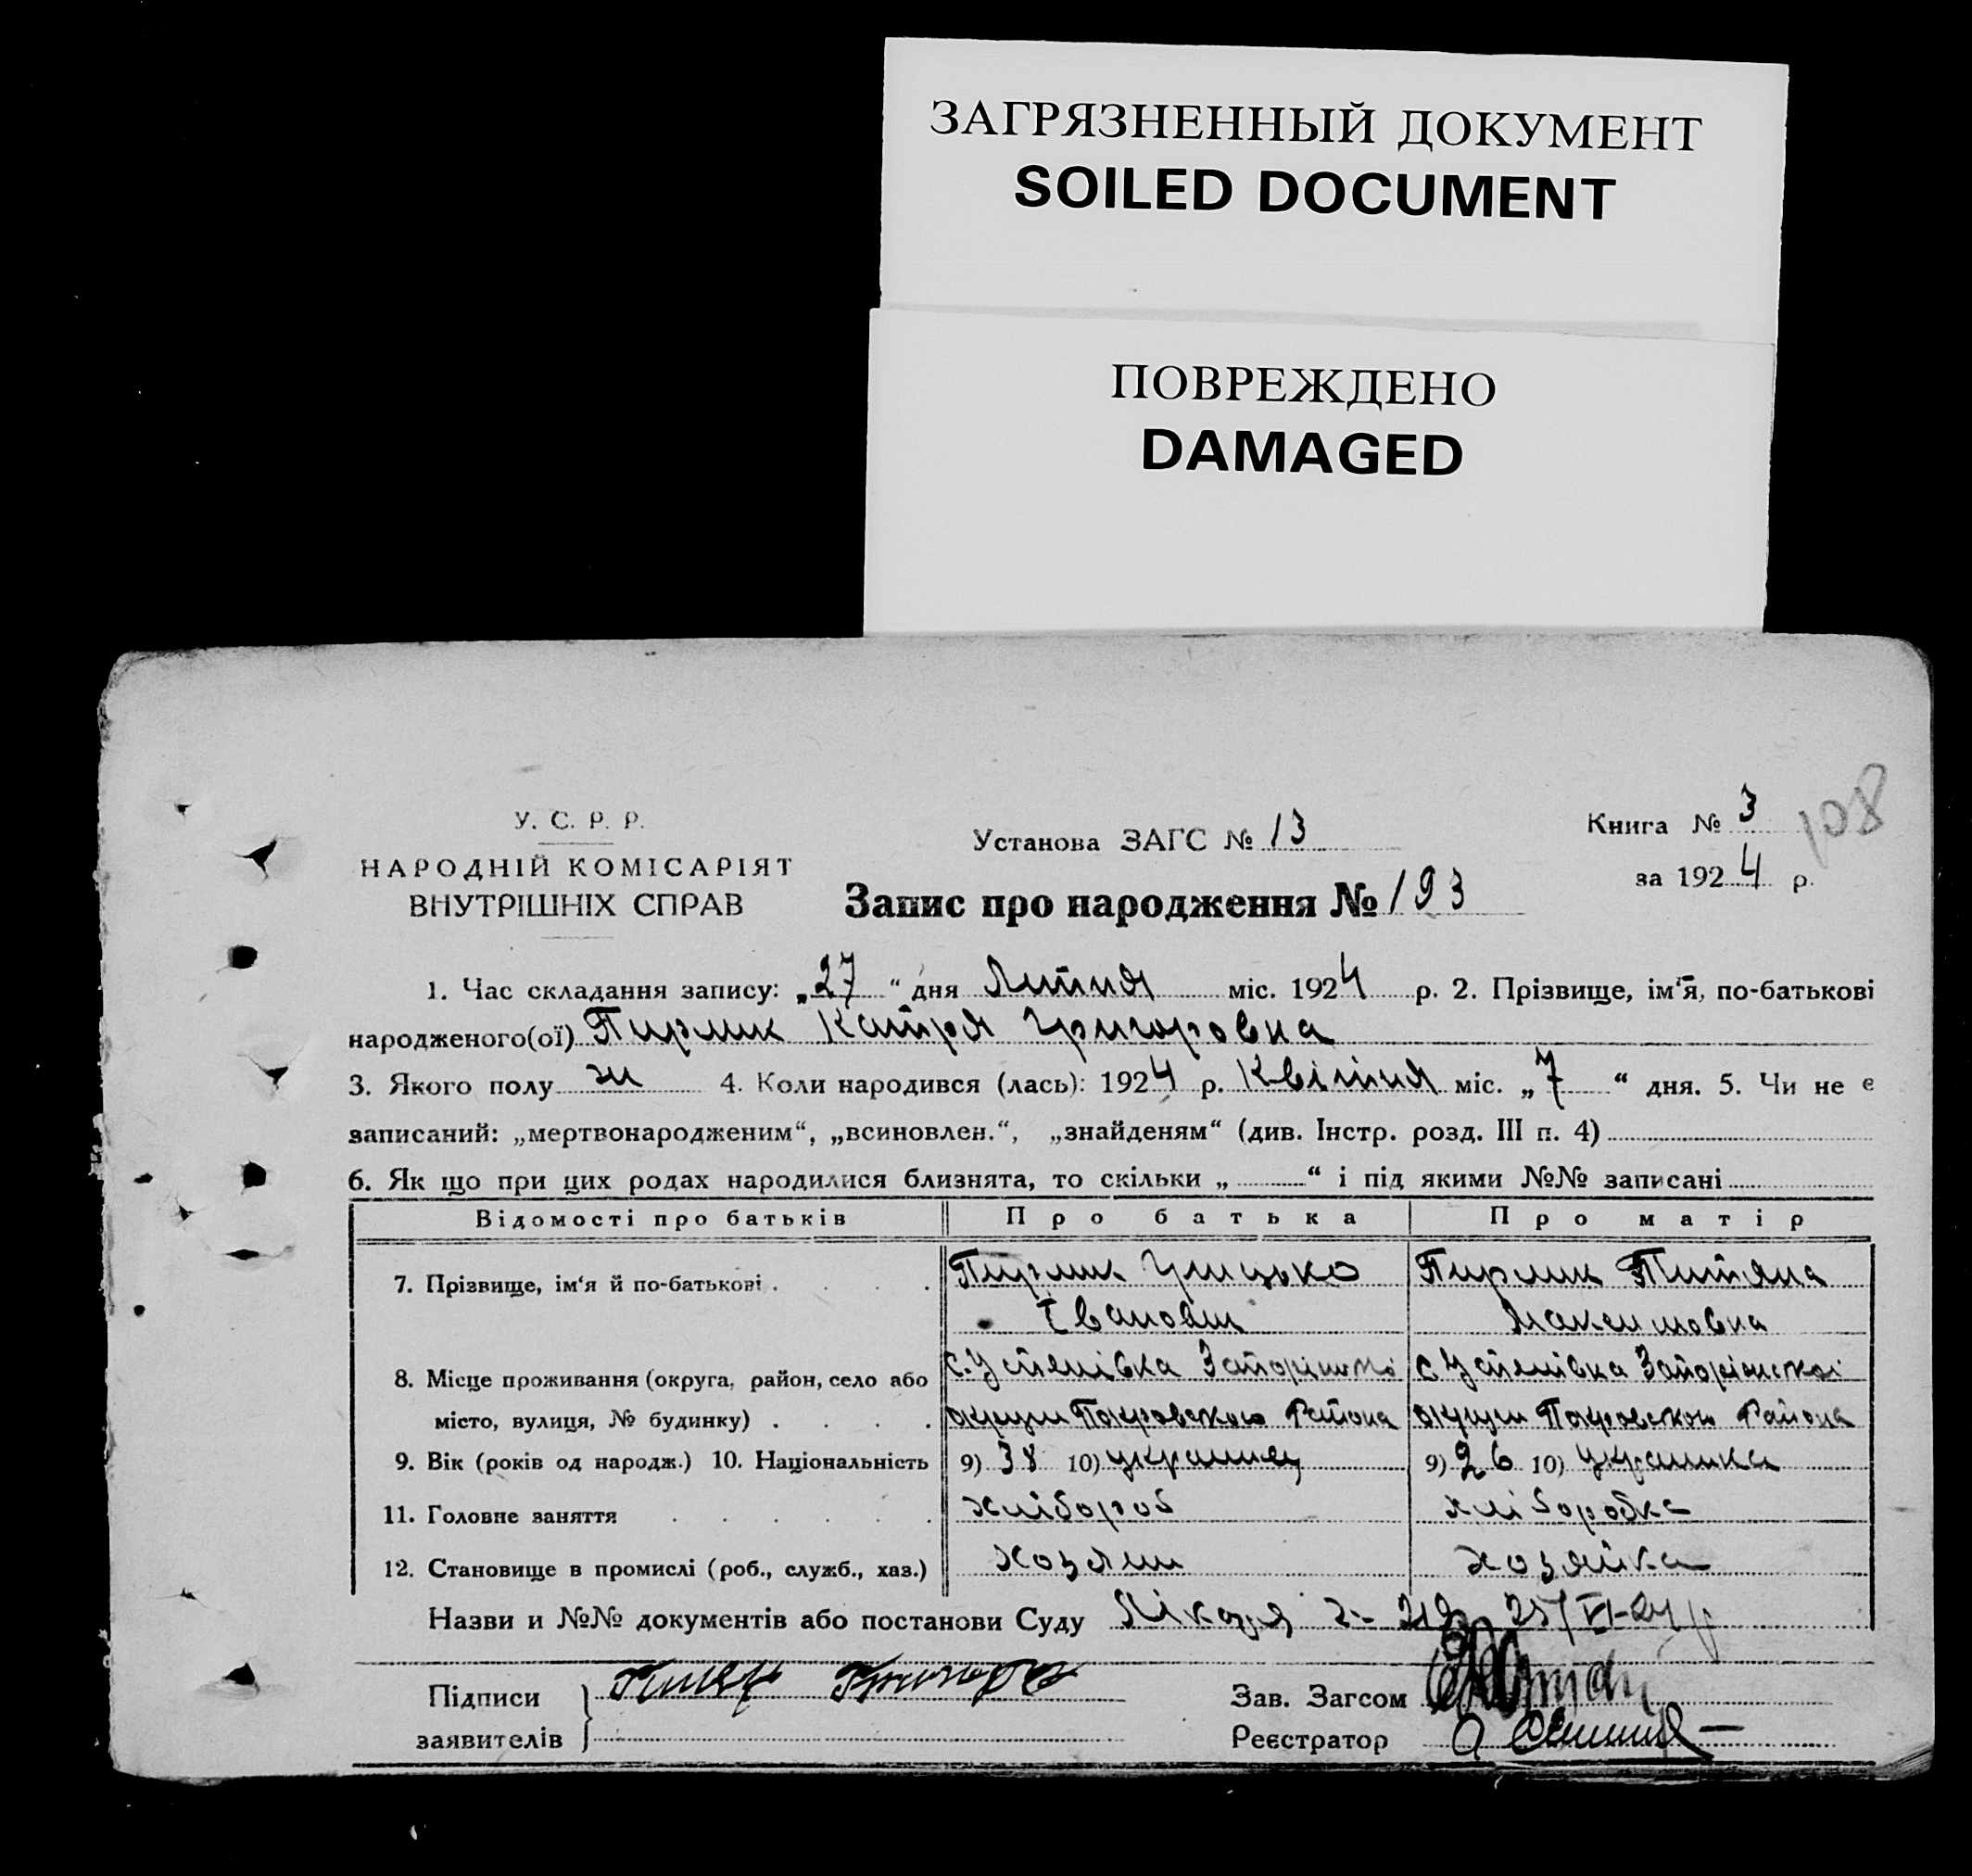 ЗАГРЯЗНЕННЫЙ ДОКУМЕНТ
SOILED DOCUMENT
ПОВРЕЖДЕНО
DAMAGED
108
У. С. Р. Р.
НАРОДНІЙ КОМІСАРІЯТ
ВНУТРІШНІХ СПРАВ
Установа ЗАГС № 13
Запис про народження № 193
Книга № 3
за 1924 р.
1. Час складання запису: „27“ дня Липня міс. 1924 р. 2. Прізвище, ім‘я, по-батькові
народженого(ої) Пирлик Катря Григоровна
3. Якого полу ж 4. Коли народився (лась): 1924 р. Квітня міс. „7“ дня. 5. Чи не є
записаний: „мертвонародженим“, „всиновлен.“, „знайденям“ (див. Інстр. розд. III п. 4)
6. Як що при цих родах народилися близнята, то скільки „ “ і під якими №№ записані
Відомості про батьків Про батька Про матір
7. Прізвище, ім‘я й по-батькові . . . . Пирлик Грицько Пирлик Титяна
Іванович Максимовна
8. Місце проживання (округа, район, село або с. Успенівка Запоріжської с. Успенівка Запоріжської
місто, вулиця, № будинку) . . . . округи Покровського Района округи Покровського Района
9. Вік (років од народж.) 10. Національність 9) 38 10) українець 9) 26 10) українка
11. Головне заняття . . . . . хлібороб хліборобка
12. Становище в промислі (роб., служб., хаз.) хозяин хозяйка
Назви и №№ документів або постанови Суду 25/VI-24 р
Підписи
заявителів
Зав. Загсом
Реєстратор